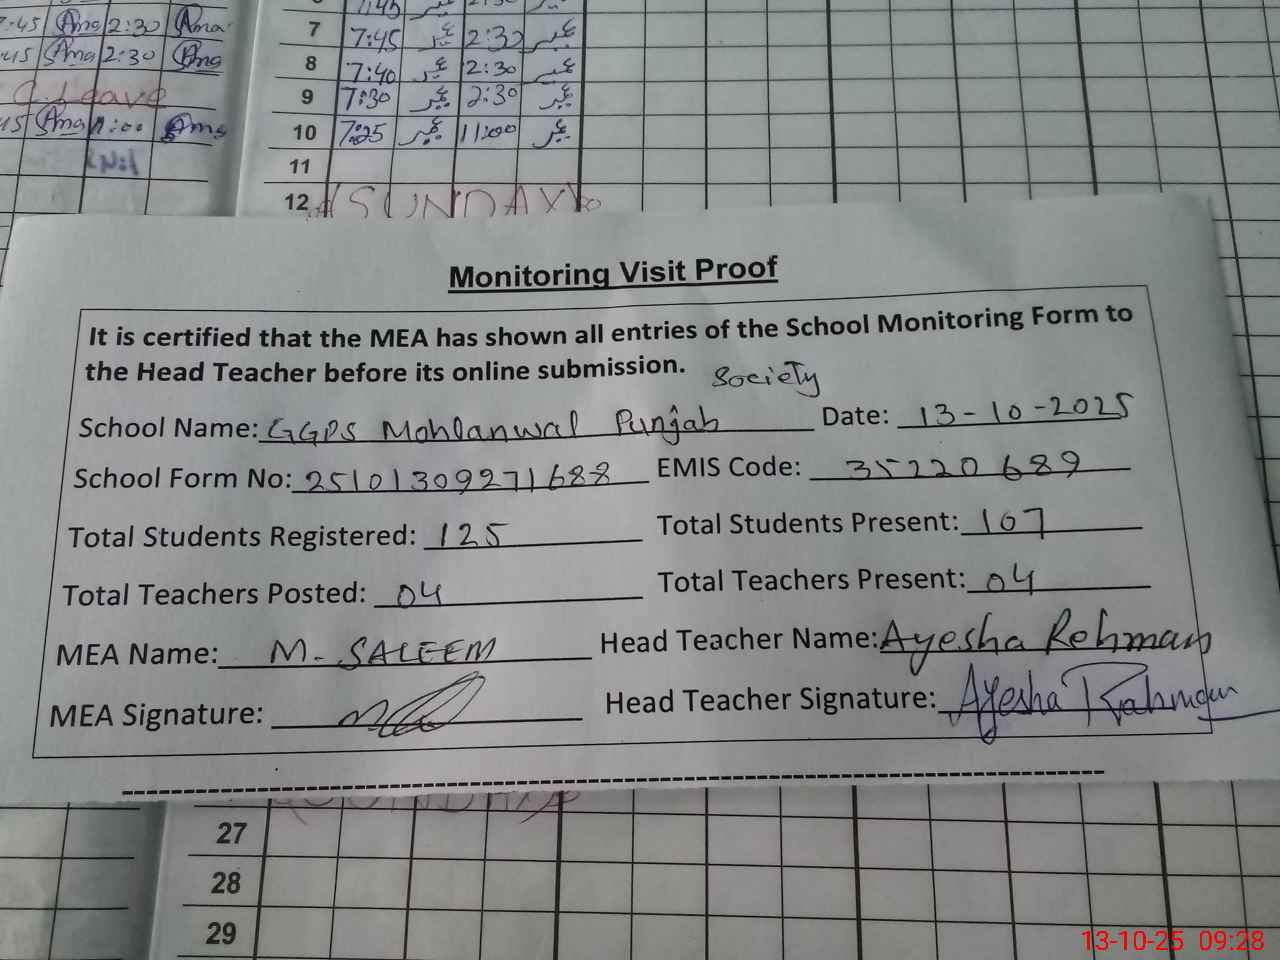 7:45 Ama 2:30 Ama
7 7:45 عبر 2:30 عبر
45 Ama 2:30 Ama
8 7:40 عبر 2:30 عبر
C. Leave
9 7:30 عبر 2:30 عبر
45 Ama 11:00 Ama
10 7:25 عبر 11:00 عبر
11
12 (SUNDAY)
Monitoring Visit Proof
It is certified that the MEA has shown all entries of the School Monitoring Form to
the Head Teacher before its online submission.
Society
School Name: GGPS Mohlanwal Punjab Date: 13-10-2025
School Form No: 25101309271688 EMIS Code: 35220689
Total Students Registered: 125 Total Students Present: 107
Total Teachers Posted: 04 Total Teachers Present: 04
MEA Name: M-SALEEM Head Teacher Name: Ayesha Rehman
MEA Signature: Head Teacher Signature: Ayesha Rahman
27
28
29
13-10-25 09:28